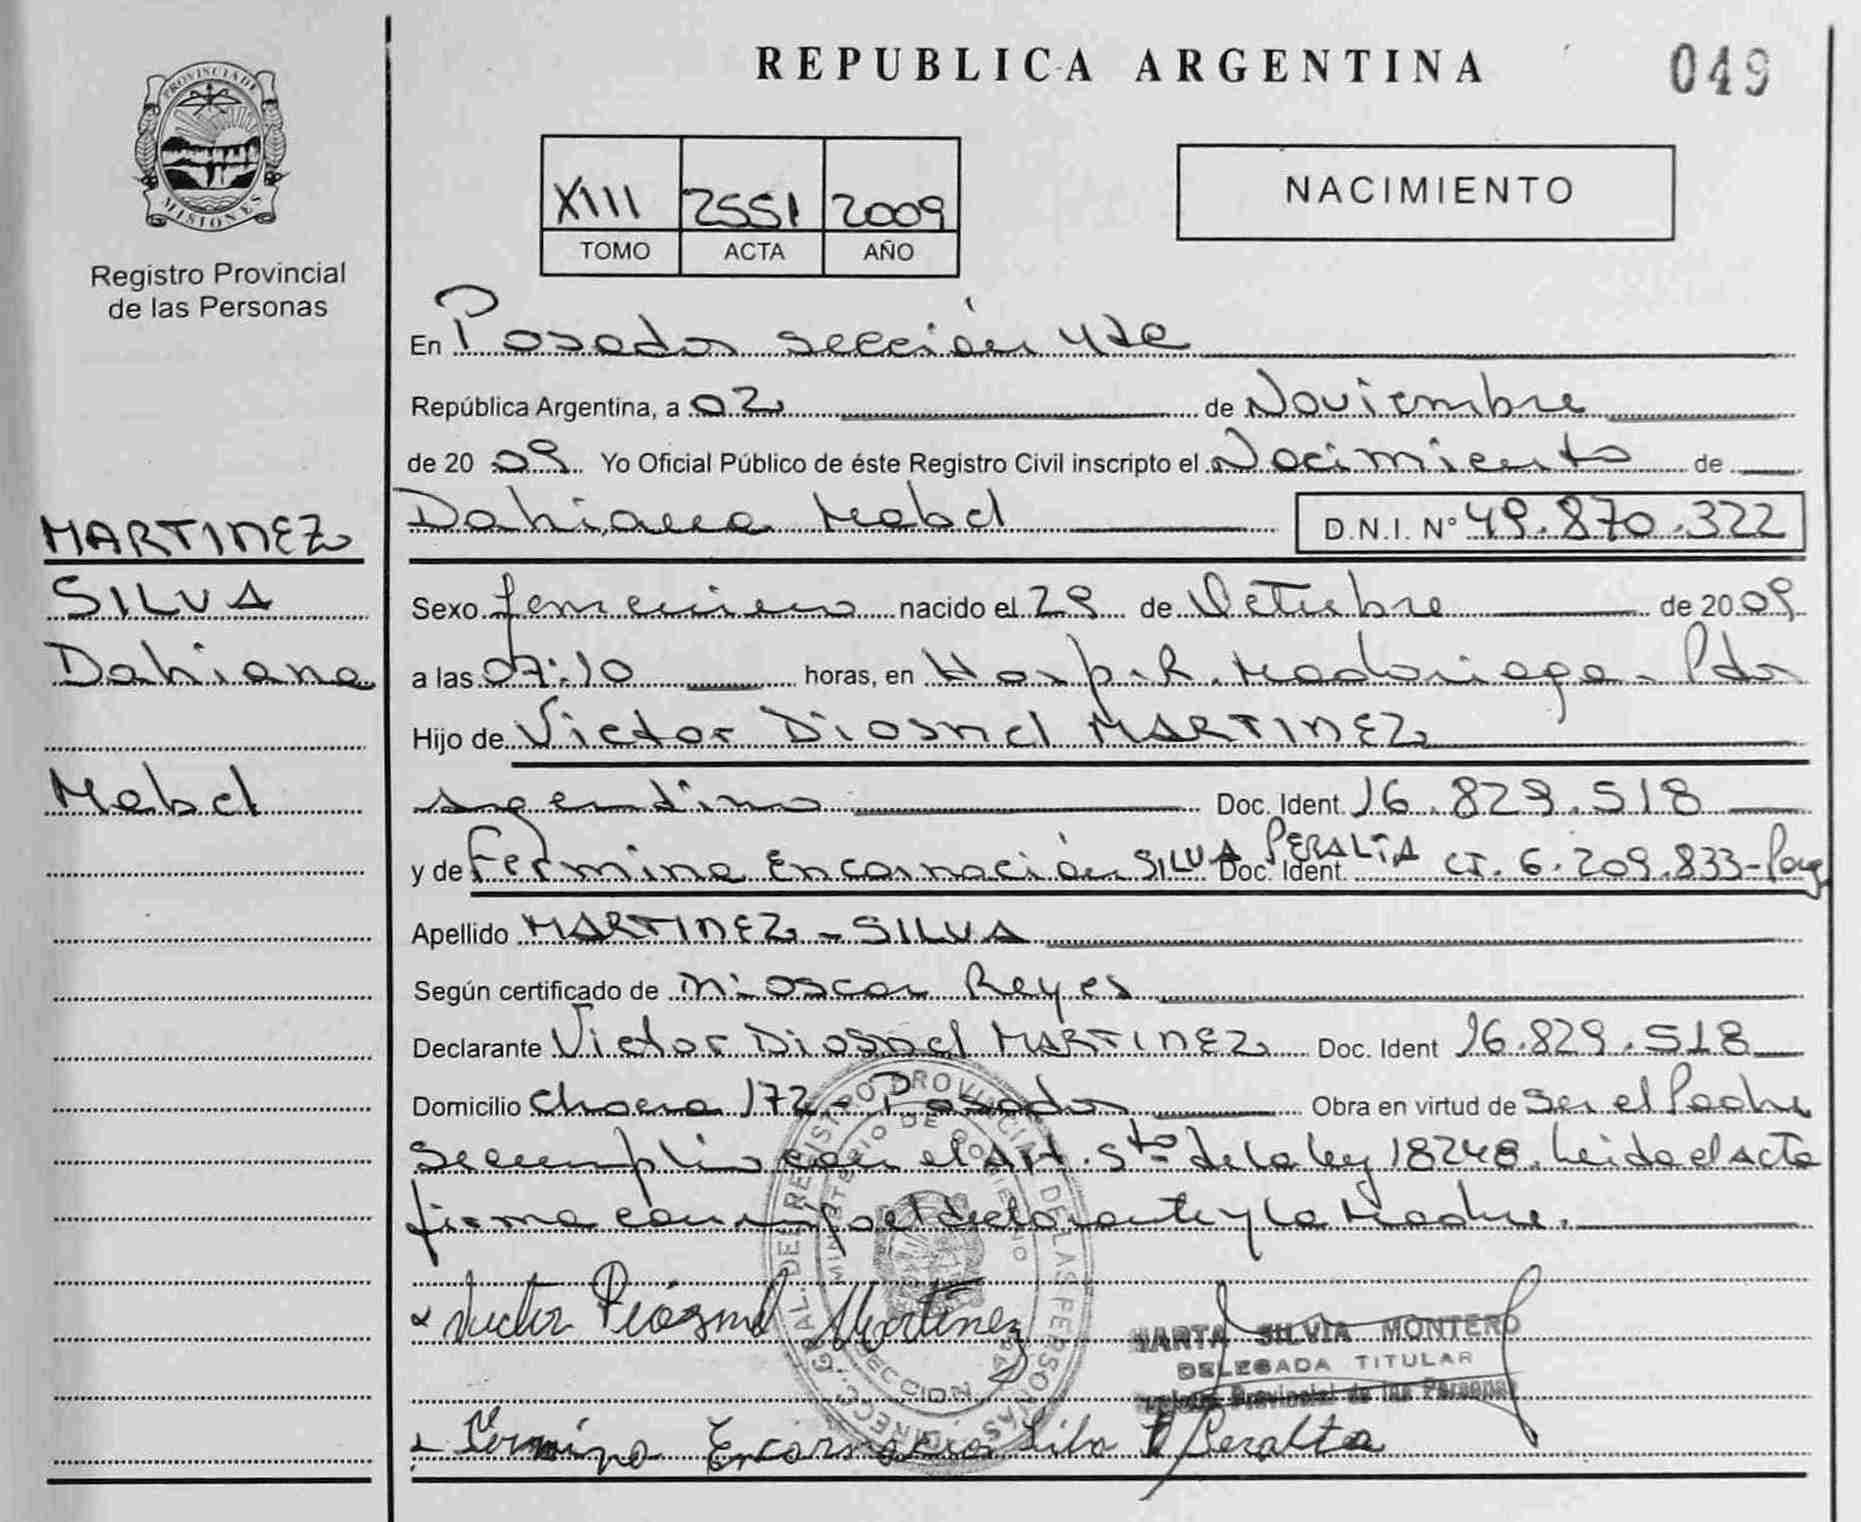 REPUBLICA ARGENTINA
049
PROVINCIA DE
MISIONES
Registro Provincial
de las Personas
XIII 2551 2009
TOMO ACTA AÑO
NACIMIENTO
En Posadas sección 4ta
República Argentina, a 02 de Noviembre
de 20 09 Yo Oficial Público de éste Registro Civil inscripto el Nacimiento de
Dahiana Mabel D.N.I. Nº 49.870.322
MARTINEZ
SILVA
Dahiana
Mabel
Sexo femenino nacido el 29 de Octubre de 20 09
a las 07:10 horas, en Hosp. R. Madariaga - Pdas
Hijo de Victor Diosnel MARTINEZ
argentino Doc. Ident. 16.829.518
y de Fermina Encarnación SILVA PERALTA Doc. Ident. CI. 6.209.833-Parg
Apellido MARTINEZ - SILVA
Según certificado de Nioscar Reyes
Declarante Victor Diosnel MARTINEZ Doc. Ident 16.829.518
Domicilio Chacra 172 - Posadas Obra en virtud de Ser el Padre
Se cumplio con el Art. 5to de la ley 18248. Leida el acta
firma con el declarante y la Madre.
Victor Diosnel Martinez
MARTA SILVIA MONTERO
DELEGADA TITULAR
Registro Provincial de las Personas
Fermina Encarnacion Silva Peralta